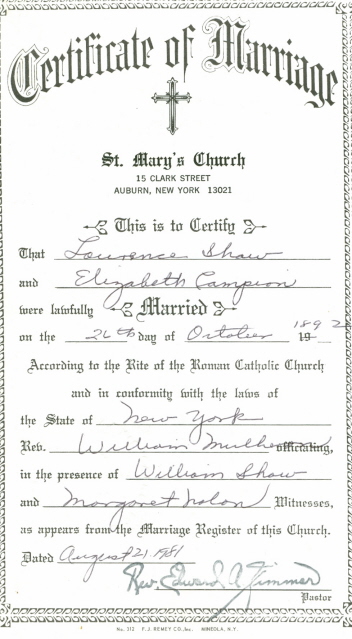 Certificate of Marriage
St. Mary's Church
15 CLARK STREET
AUBURN, NEW YORK 13021
This is to Certify
That Lawrence Shaw
and Elizabeth Campion
were lawfully Married
on the 26th day of October 189
According to the Rite of the Roman Catholic Church
and in conformity with the laws of
the State of New York
Rev. William officiating,
in the presence of William Shaw
and Margaret Nolan Witnesses,
as appears from the Marriage Register of this Church.
Dated August 21 1981
Rev. Edward A. Zimmer
Pastor
No. 312 F. J. REMEY CO., Inc. MINEOLA, N.Y.